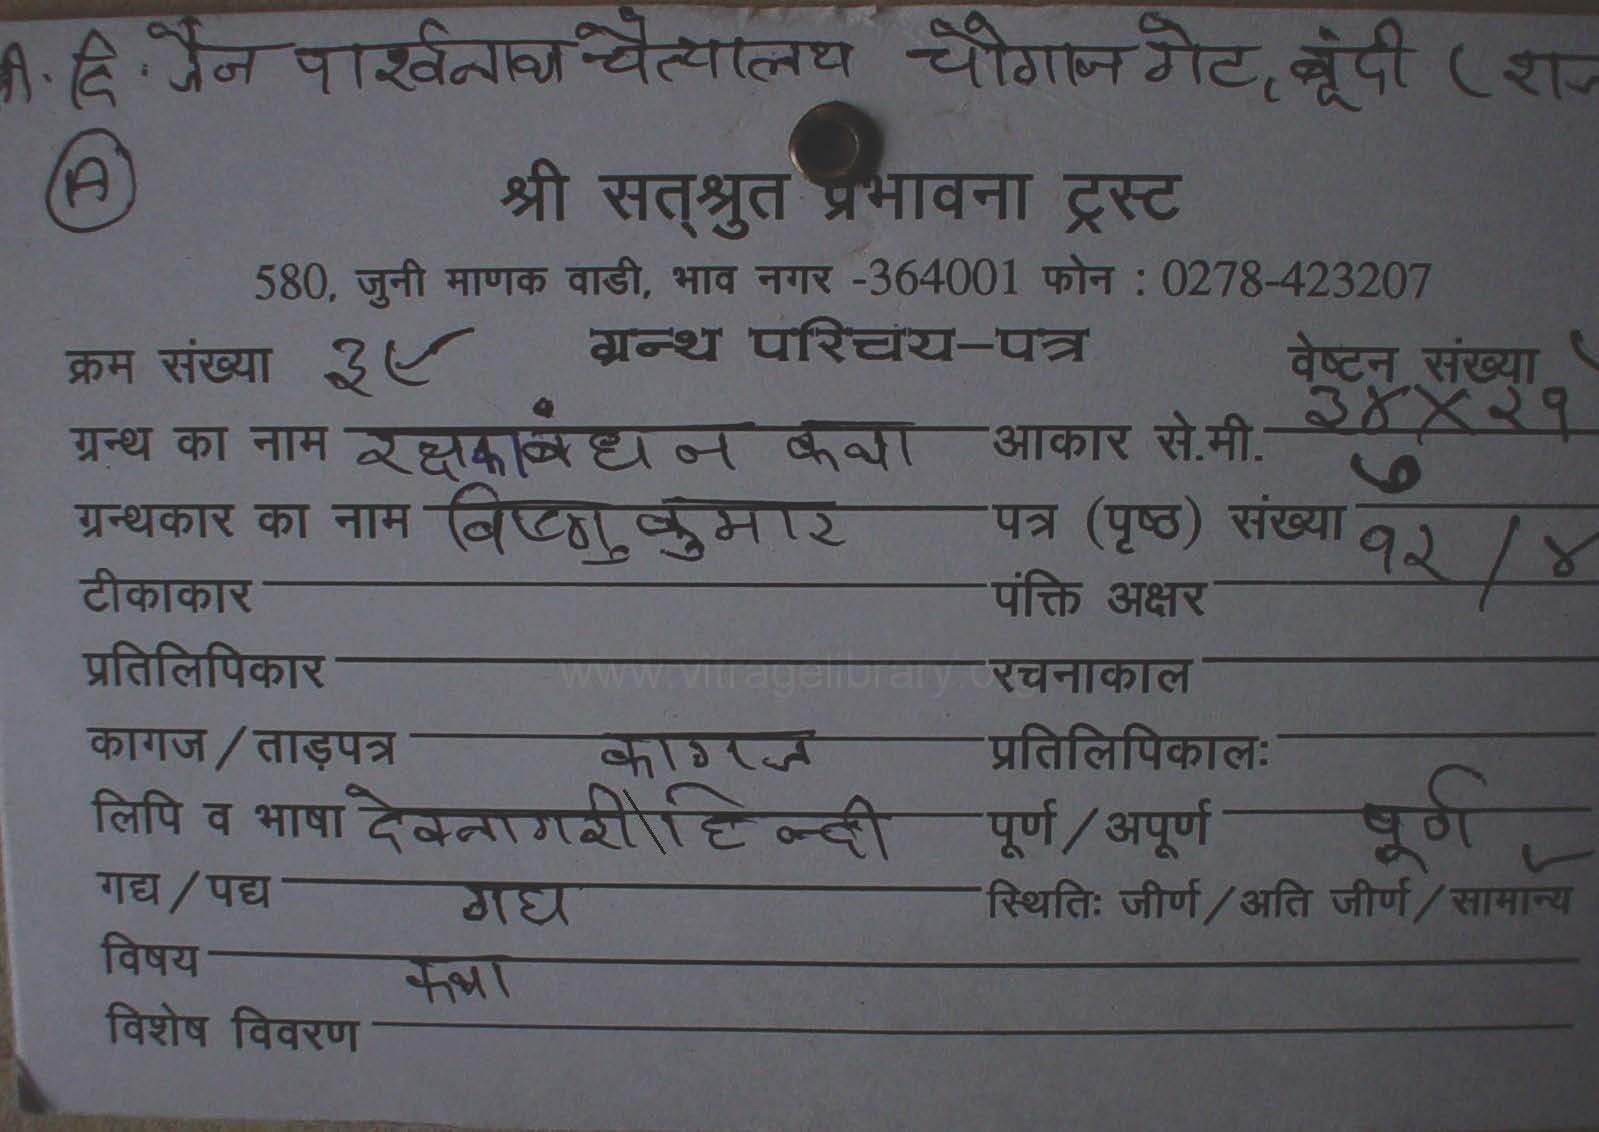 दि. जैन पार्श्वनाथ चैत्यालय चौगान गेट, बूंदी (राज
A
श्री सत्श्रुत प्रभावना ट्रस्ट
580, जुनी माणक वाडी, भाव नगर -364001 फोन : 0278-423207
क्रम संख्या ३९ ग्रन्थ परिचय-पत्र वेष्टन संख्या
ग्रन्थ का नाम रक्षाबंधन कथा आकार से.मी. ३४X२१
ग्रन्थकार का नाम विष्णुकुमार पत्र (पृष्ठ) संख्या ७
टीकाकार पंक्ति अक्षर १२ / ४
प्रतिलिपिकार रचनाकाल
कागज/ताड़पत्र कागज प्रतिलिपिकालः
लिपि व भाषा देवनागरी\हिन्दी पूर्ण/अपूर्ण पूर्ण
गद्य/पद्य गद्य स्थितिः जीर्ण/अति जीर्ण/सामान्य
विषय कथा
विशेष विवरण